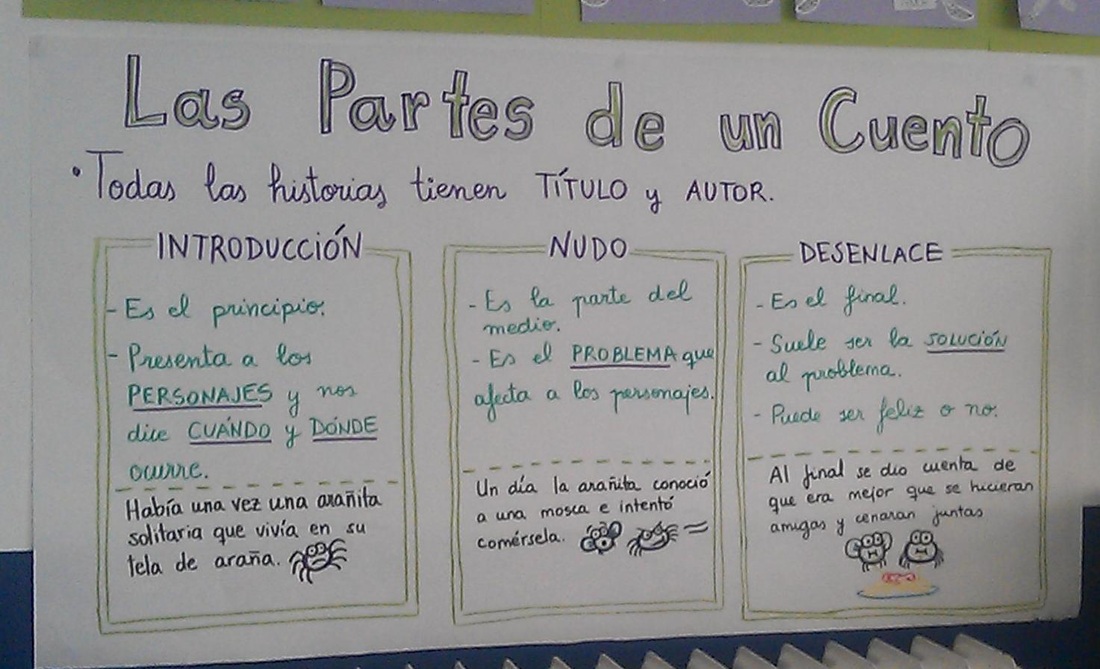 Las Partes de un Cuento
• Todas las historias tienen TÍTULO y AUTOR.
INTRODUCCIÓN
- Es el principio.
- Presenta a los
PERSONAJES y nos
dice CUÁNDO y DÓNDE
ocurre.
Había una vez una arañita
solitaria que vivía en su
tela de araña.
NUDO
- Es la parte del
medio.
- Es el PROBLEMA que
afecta a los personajes.
Un día la arañita conoció
a una mosca e intentó
comérsela.
DESENLACE
- Es el final.
- Suele ser la SOLUCIÓN
al problema.
- Puede ser feliz o no.
Al final se dio cuenta de
que era mejor que se hicieran
amigas y cenaran juntas